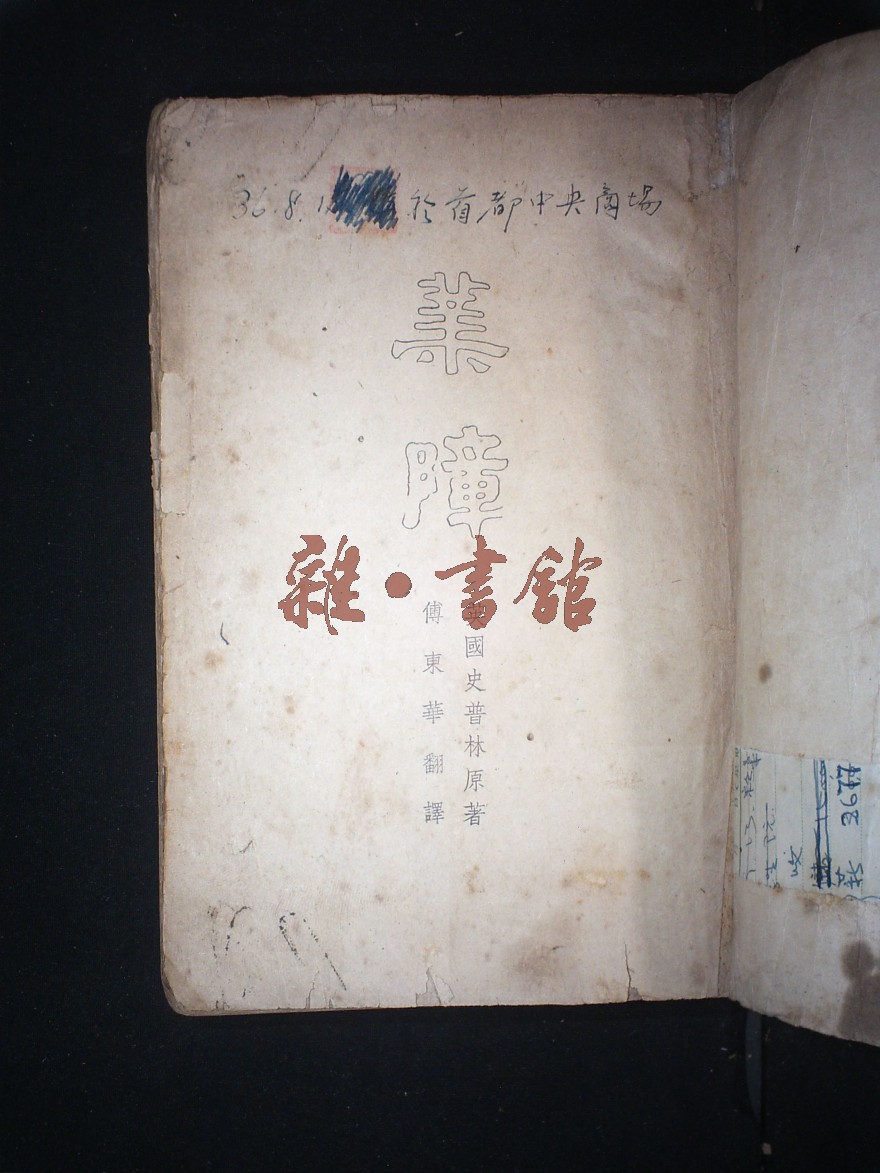 36.8.1 於首都中央商場
業障
雜·書館
英國史普林原著
傅東華翻譯
3677